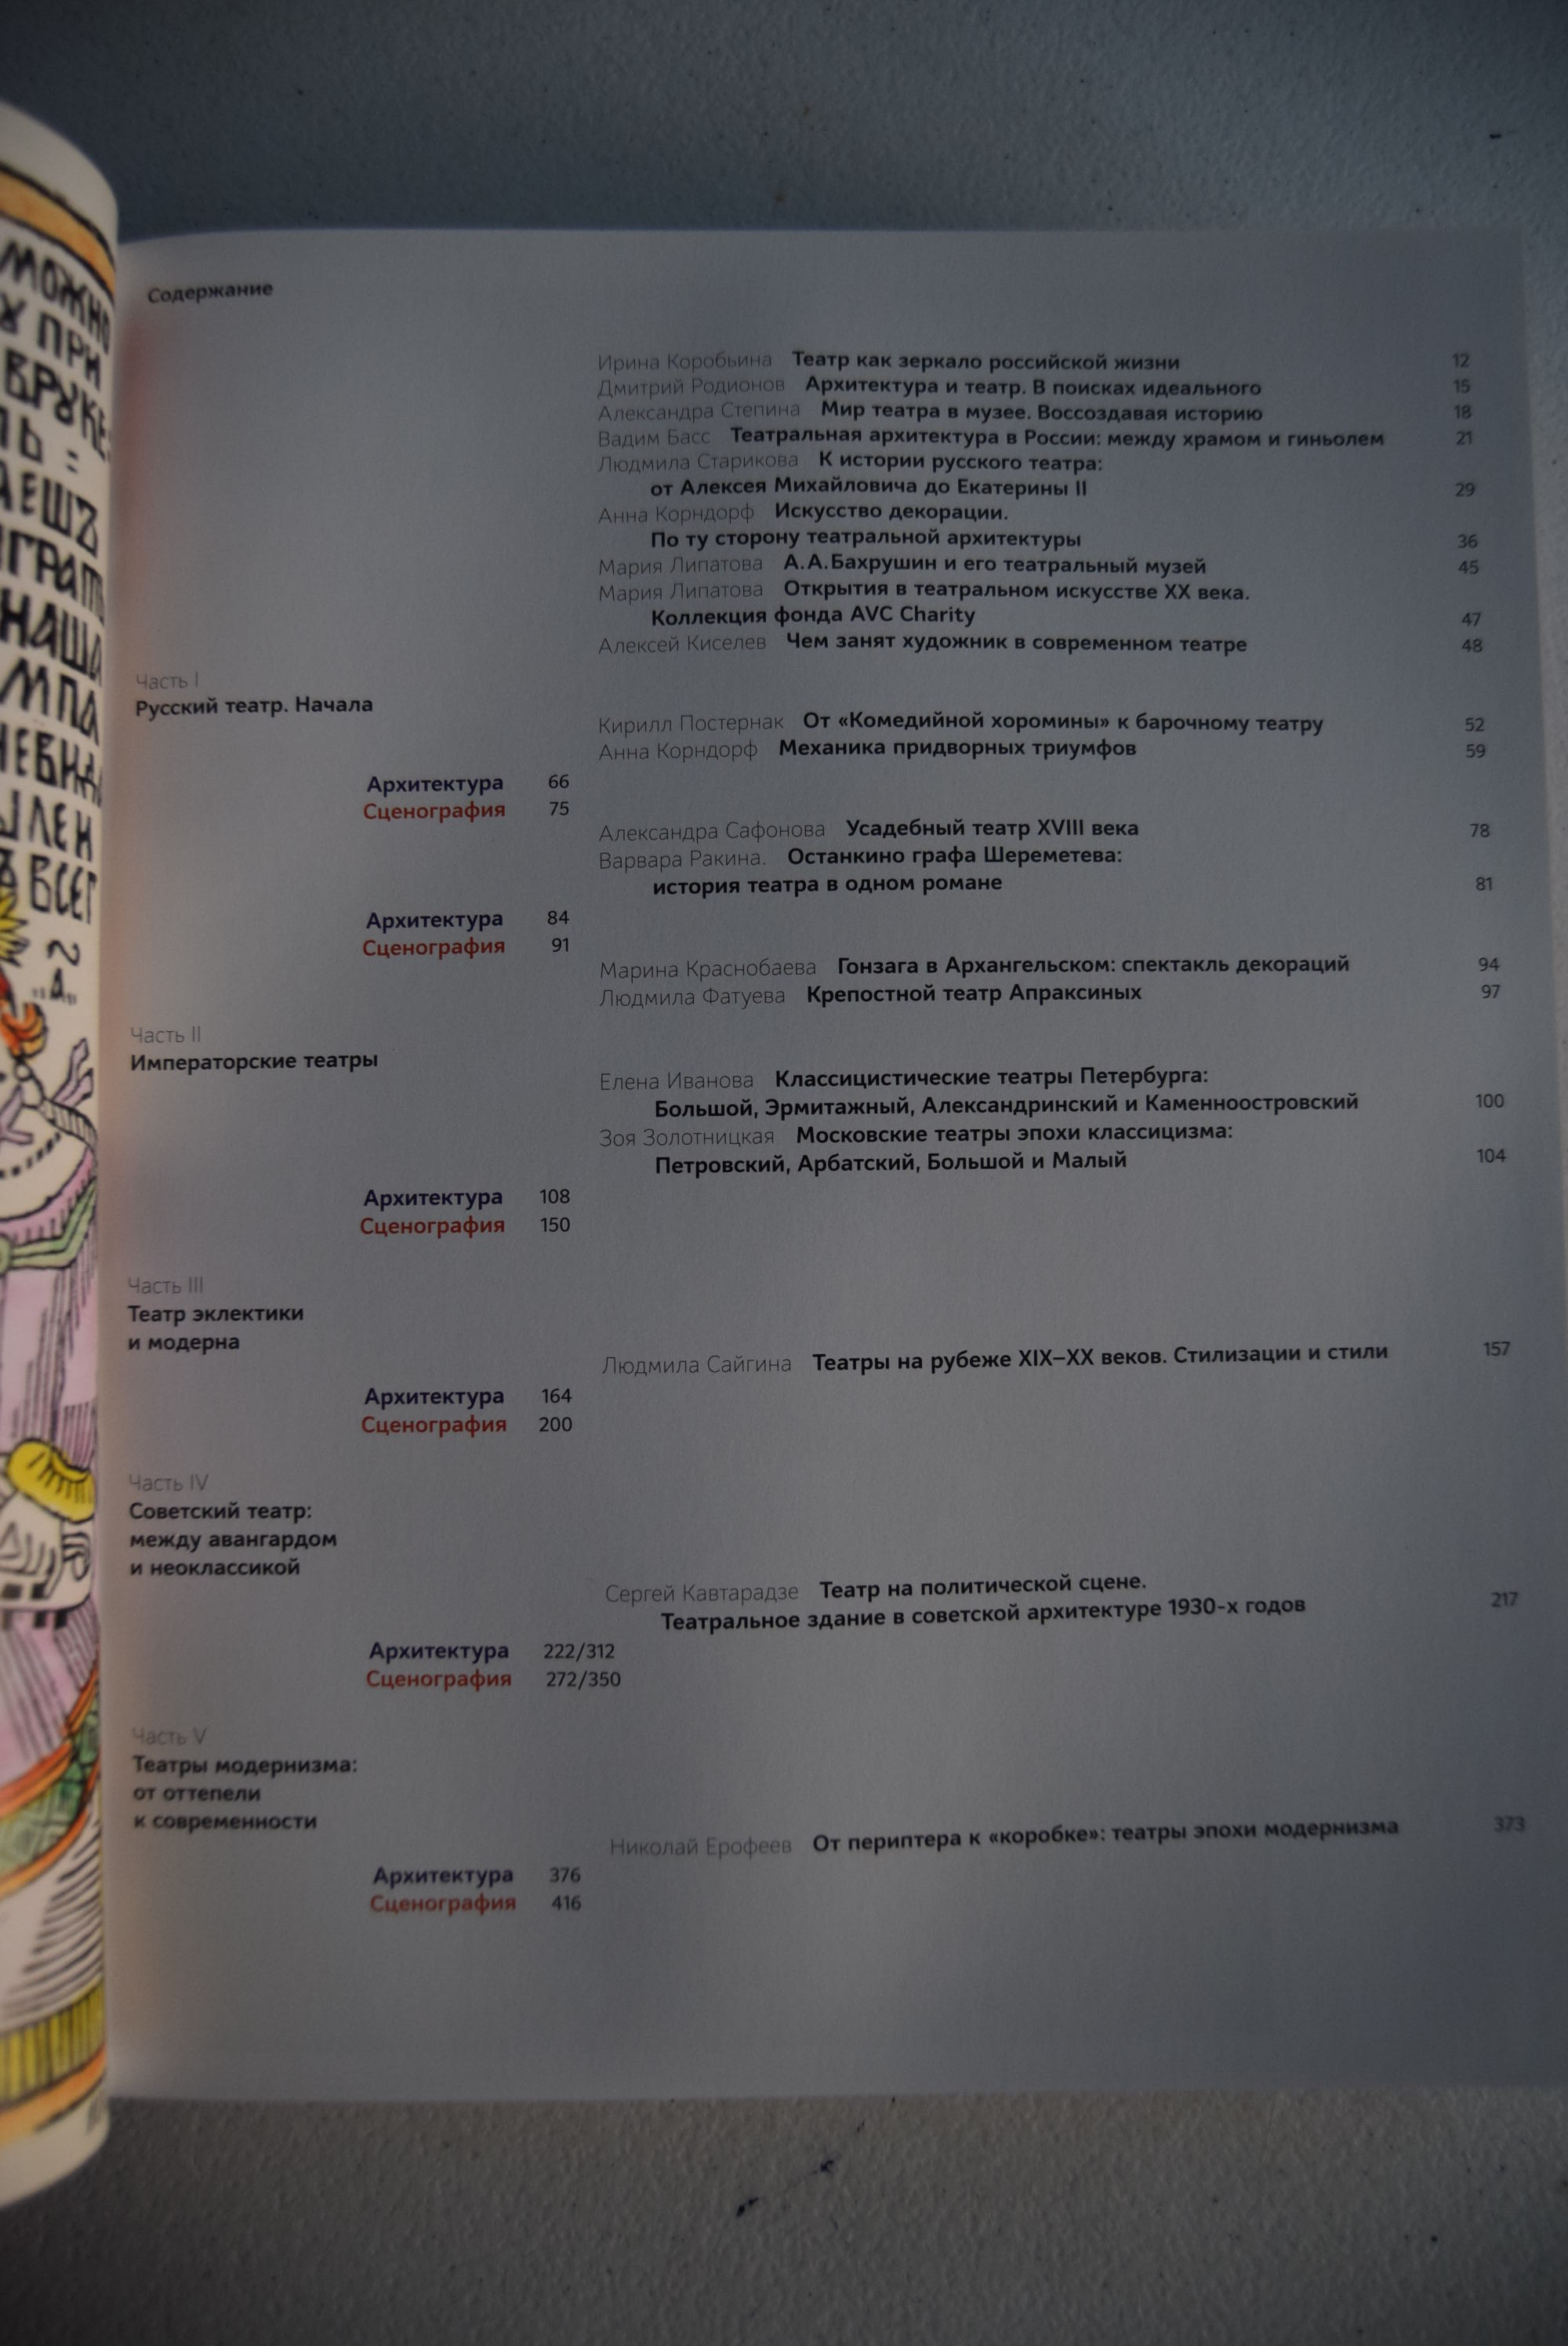 МОЖНО
ПРИ
ЛЬ =
АЕШЪ
ИГРАТЬ
НАША
ЛЕН
ВСЕГ
Содержание
Ирина Коробьина Театр как зеркало российской жизни 12
Дмитрий Родионов Архитектура и театр. В поисках идеального 15
Александра Степина Мир театра в музее. Воссоздавая историю 18
Вадим Басс Театральная архитектура в России: между храмом и гиньолем 21
Людмила Старикова К истории русского театра:
от Алексея Михайловича до Екатерины II 29
Анна Корндорф Искусство декорации.
По ту сторону театральной архитектуры 36
Мария Липатова А.А.Бахрушин и его театральный музей 45
Мария Липатова Открытия в театральном искусстве XX века.
Коллекция фонда AVC Charity 47
Алексей Киселев Чем занят художник в современном театре 48
Часть I
Русский театр. Начала
Кирилл Постернак От «Комедийной хоромины» к барочному театру 52
Анна Корндорф Механика придворных триумфов 59
Архитектура 66
Сценография 75
Александра Сафонова Усадебный театр XVIII века 78
Варвара Ракина. Останкино графа Шереметева:
история театра в одном романе 81
Архитектура 84
Сценография 91
Марина Краснобаева Гонзага в Архангельском: спектакль декораций 94
Людмила Фатуева Крепостной театр Апраксиных 97
Часть II
Императорские театры
Елена Иванова Классицистические театры Петербурга:
Большой, Эрмитажный, Александринский и Каменноостровский 100
Зоя Золотницкая Московские театры эпохи классицизма:
Петровский, Арбатский, Большой и Малый 104
Архитектура 108
Сценография 150
Часть III
Театр эклектики
и модерна
Людмила Сайгина Театры на рубеже XIX–XX веков. Стилизации и стили 157
Архитектура 164
Сценография 200
Часть IV
Советский театр:
между авангардом
и неоклассикой
Сергей Кавтарадзе Театр на политической сцене.
Театральное здание в советской архитектуре 1930-х годов 217
Архитектура 222/312
Сценография 272/350
Часть V
Театры модернизма:
от оттепели
к современности
Николай Ерофеев От периптера к «коробке»: театры эпохи модернизма 373
Архитектура 376
Сценография 416